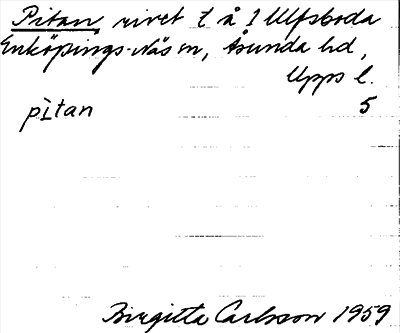 Pitan, rivet t å 1 Ulfsboda
Enköpings-Näs sn, Åsunda hd,
Upps l.
pìtan 5
Birgitta Carlsson 1959